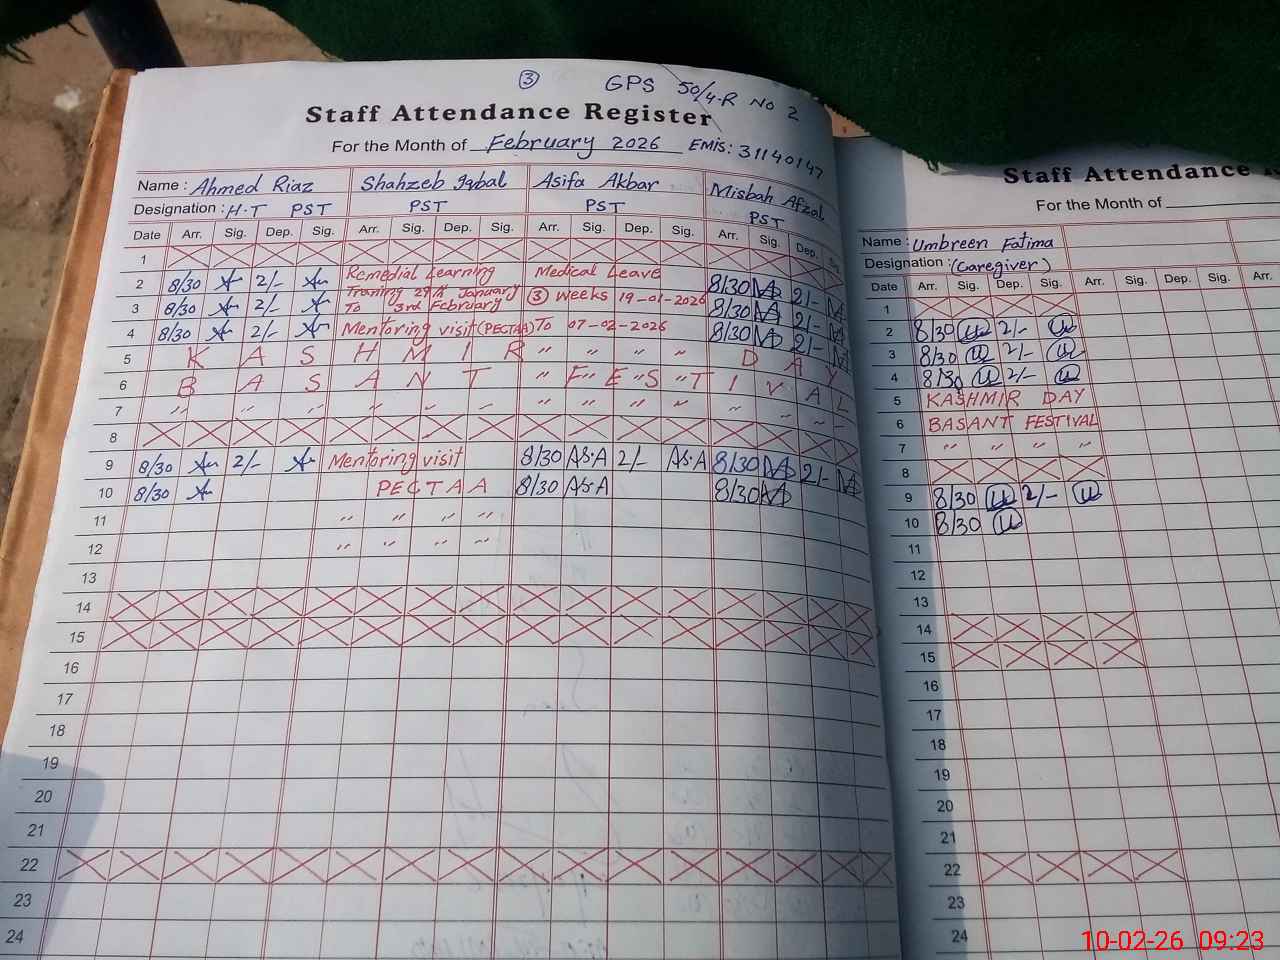 ③ GPS 50/4-R No 2
Staff Attendance Register
For the Month of February 2026 EMIS: 31140147
Name: Ahmed Riaz Shahzeb Iqbal Asifa Akbar Misbah Afzal
Designation: H.T PST PST PST PST
Date Arr. Sig. Dep. Sig. Arr. Sig. Dep. Sig. Arr. Sig. Dep. Sig. Arr. Sig. Dep. Sig.
1
2 8/30 2/- Remedial Learning Medical Leave 8/30 2/-
Traning 29th January
3 8/30 2/- To 3rd February ③ weeks 19-01-2026 8/30 2/-
4 8/30 2/- Mentoring visit (PECTAA) To 07-02-2026 8/30 2/-
5 K A S H M I R " " " " D A Y
6 B A S A N T " F " E " S " T I V A L
7 " " " " " " " " " " " " " "
8
9 8/30 2/- Mentoring visit 8/30 AS.A 2/- AS.A 8/30 2/-
10 8/30 PECTAA 8/30 AS.A 8/30
11 " " " "
12 " " " "
13
14
15
16
17
18
19
20
21
22
23
24
Staff Attendance
For the Month of
Name: Umbreen Fatima
Designation: (Caregiver)
Date Arr. Sig. Dep. Sig. Arr. Sig. Dep. Sig. Arr.
1
2 8/30 2/-
3 8/30 2/-
4 8/30 2/-
5 KASHMIR DAY
6 BASANT FESTIVAL
7 " " " "
8
9 8/30 2/-
10 8/30
11
12
13
14
15
16
17
18
19
20
21
22
23
24
10-02-26 09:23